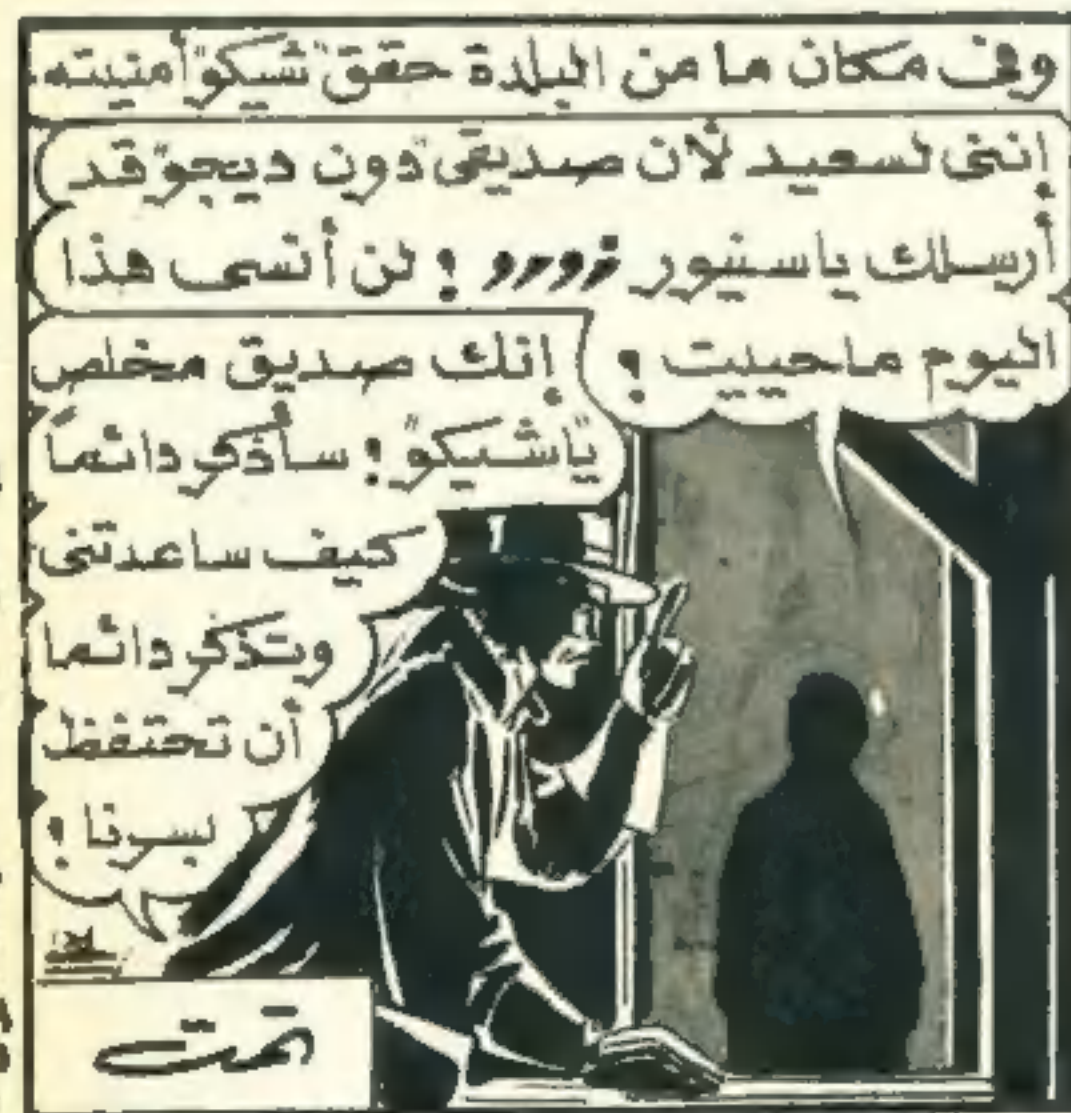 وفى مكان ما من البلدة حقق "شيكو" أمنيته.
إننى لسعيد لأن صديقى "دون ديجو" قد
أرسلك ياسنيور زورو ! لن أنسى هذا
اليوم ماحييت !
إنك صديق مخلص
ياشيكو ! سأذكر دائماً
كيف ساعدتنى
وتذكر دائما
أن تحتفظ
بسرنا !
تمت